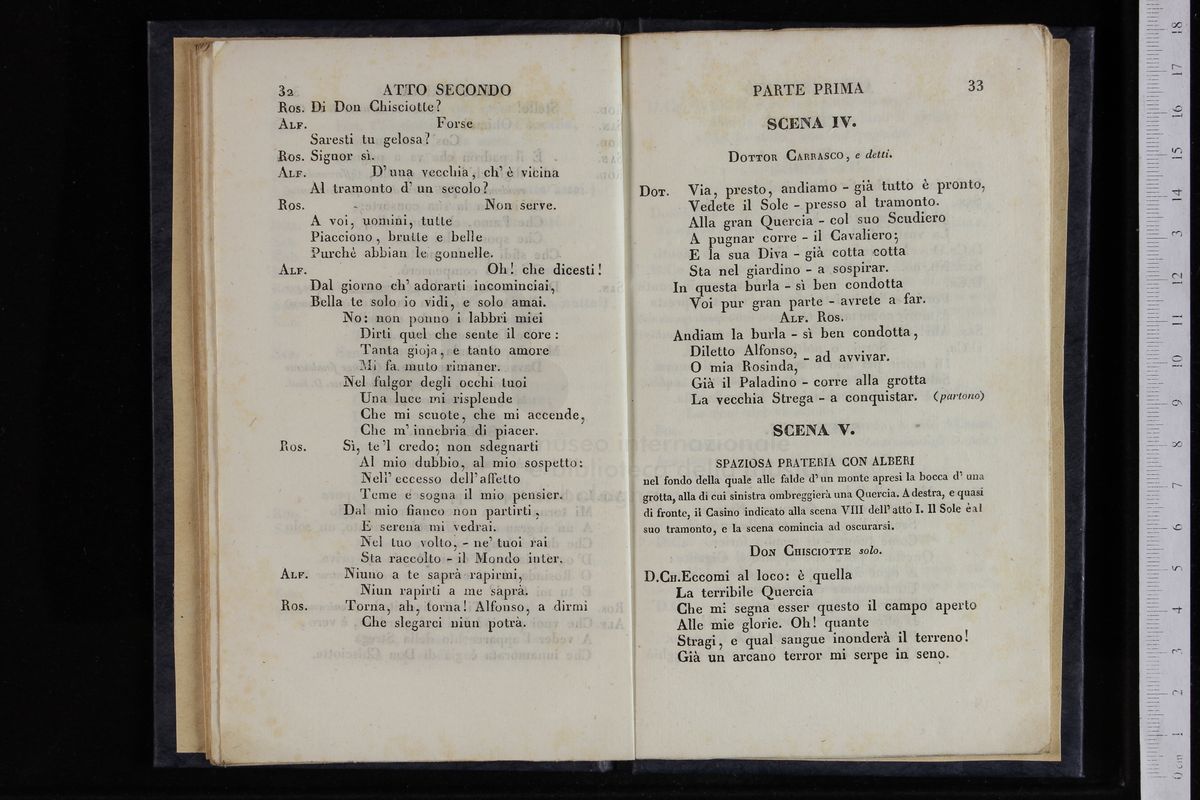 32 ATTO SECONDO
Ros. Di Don Chisciotte?
Alf. Forse
Saresti tu gelosa?
Ros. Signor sì.
Alf. D'una vecchia, ch'è vicina
Al tramonto d'un secolo?
Ros. Non serve.
A voi, uomini, tutte
Piacciono, brutte e belle
Purchè abbian le gonnelle.
Alf. Oh! che dicesti!
Dal giorno ch'adorarti incominciai,
Bella te solo io vidi, e solo amai.
No: non ponno i labbri miei
Dirti quel che sente il core:
Tanta gioja, e tanto amore
Mi fa muto rimaner.
Nel fulgor degli occhi tuoi
Una luce mi risplende
Che mi scuote, che mi accende,
Che m'innebria di piacer.
Ros. Sì, te'l credo; non sdegnarti
Al mio dubbio, al mio sospetto:
Nell'eccesso dell'affetto
Teme e sogna il mio pensier.
Dal mio fianco non partirti,
E serena mi vedrai.
Nel tuo volto, - ne' tuoi rai
Sta raccolto - il Mondo inter.
Alf. Niuno a te saprà rapirmi,
Niun rapirti a me saprà.
Ros. Torna, ah, torna! Alfonso, a dirmi
Che slegarci niun potrà.
PARTE PRIMA 33
SCENA IV.
Dottor Carrasco, e detti.
Dot. Via, presto, andiamo - già tutto è pronto,
Vedete il Sole - presso al tramonto.
Alla gran Quercia - col suo Scudiero
A pugnar corre - il Cavaliero;
E la sua Diva - già cotta cotta
Sta nel giardino - a sospirar.
In questa burla - sì ben condotta
Voi pur gran parte - avrete a far.
Alf. Ros.
Andiam la burla - sì ben condotta,
Diletto Alfonso,
O mia Rosinda, - ad avvivar.
Già il Paladino - corre alla grotta
La vecchia Strega - a conquistar. (partono)
SCENA V.
SPAZIOSA PRATERIA CON ALBERI
nel fondo della quale alle falde d'un monte apresi la bocca d'una
grotta, alla di cui sinistra ombreggierà una Quercia. A destra, e quasi
di fronte, il Casino indicato alla scena VIII dell'atto I. Il Sole è al
suo tramonto, e la scena comincia ad oscurarsi.
Don Chisciotte solo.
D.Ch. Eccomi al loco: è quella
La terribile Quercia
Che mi segna esser questo il campo aperto
Alle mie glorie. Oh! quante
Stragi, e qual sangue inonderà il terreno!
Già un arcano terror mi serpe in seno.
museo internazionale
biblioteca della
0 cm 1 2 3 4 5 6 7 8 9 10 11 12 13 14 15 16 17 18